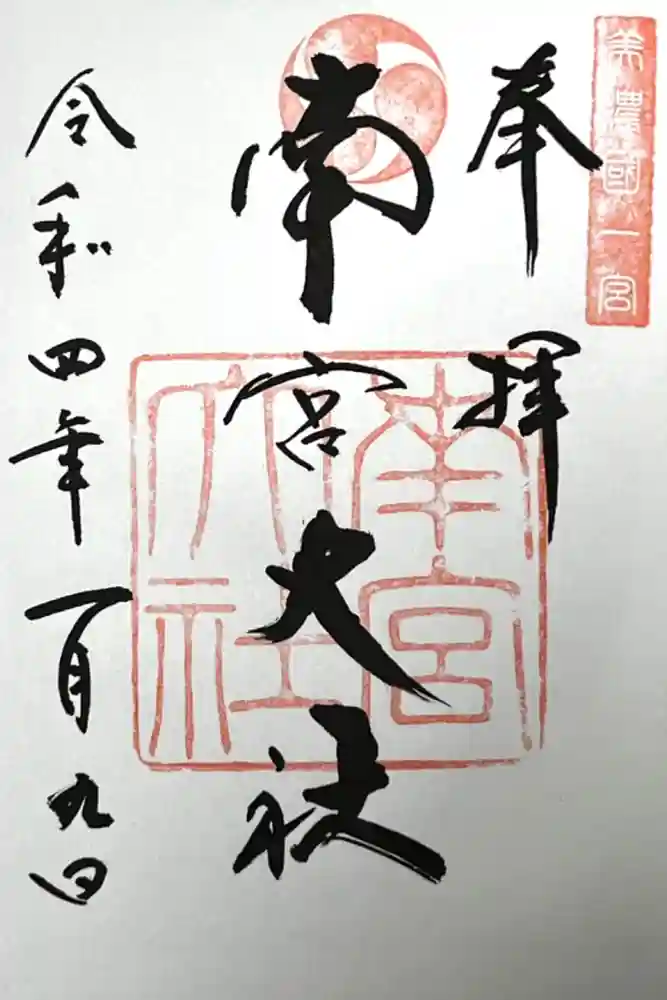 美濃國一宮
奉拝
南宮大社
南宮
大社
令和四年一月九日